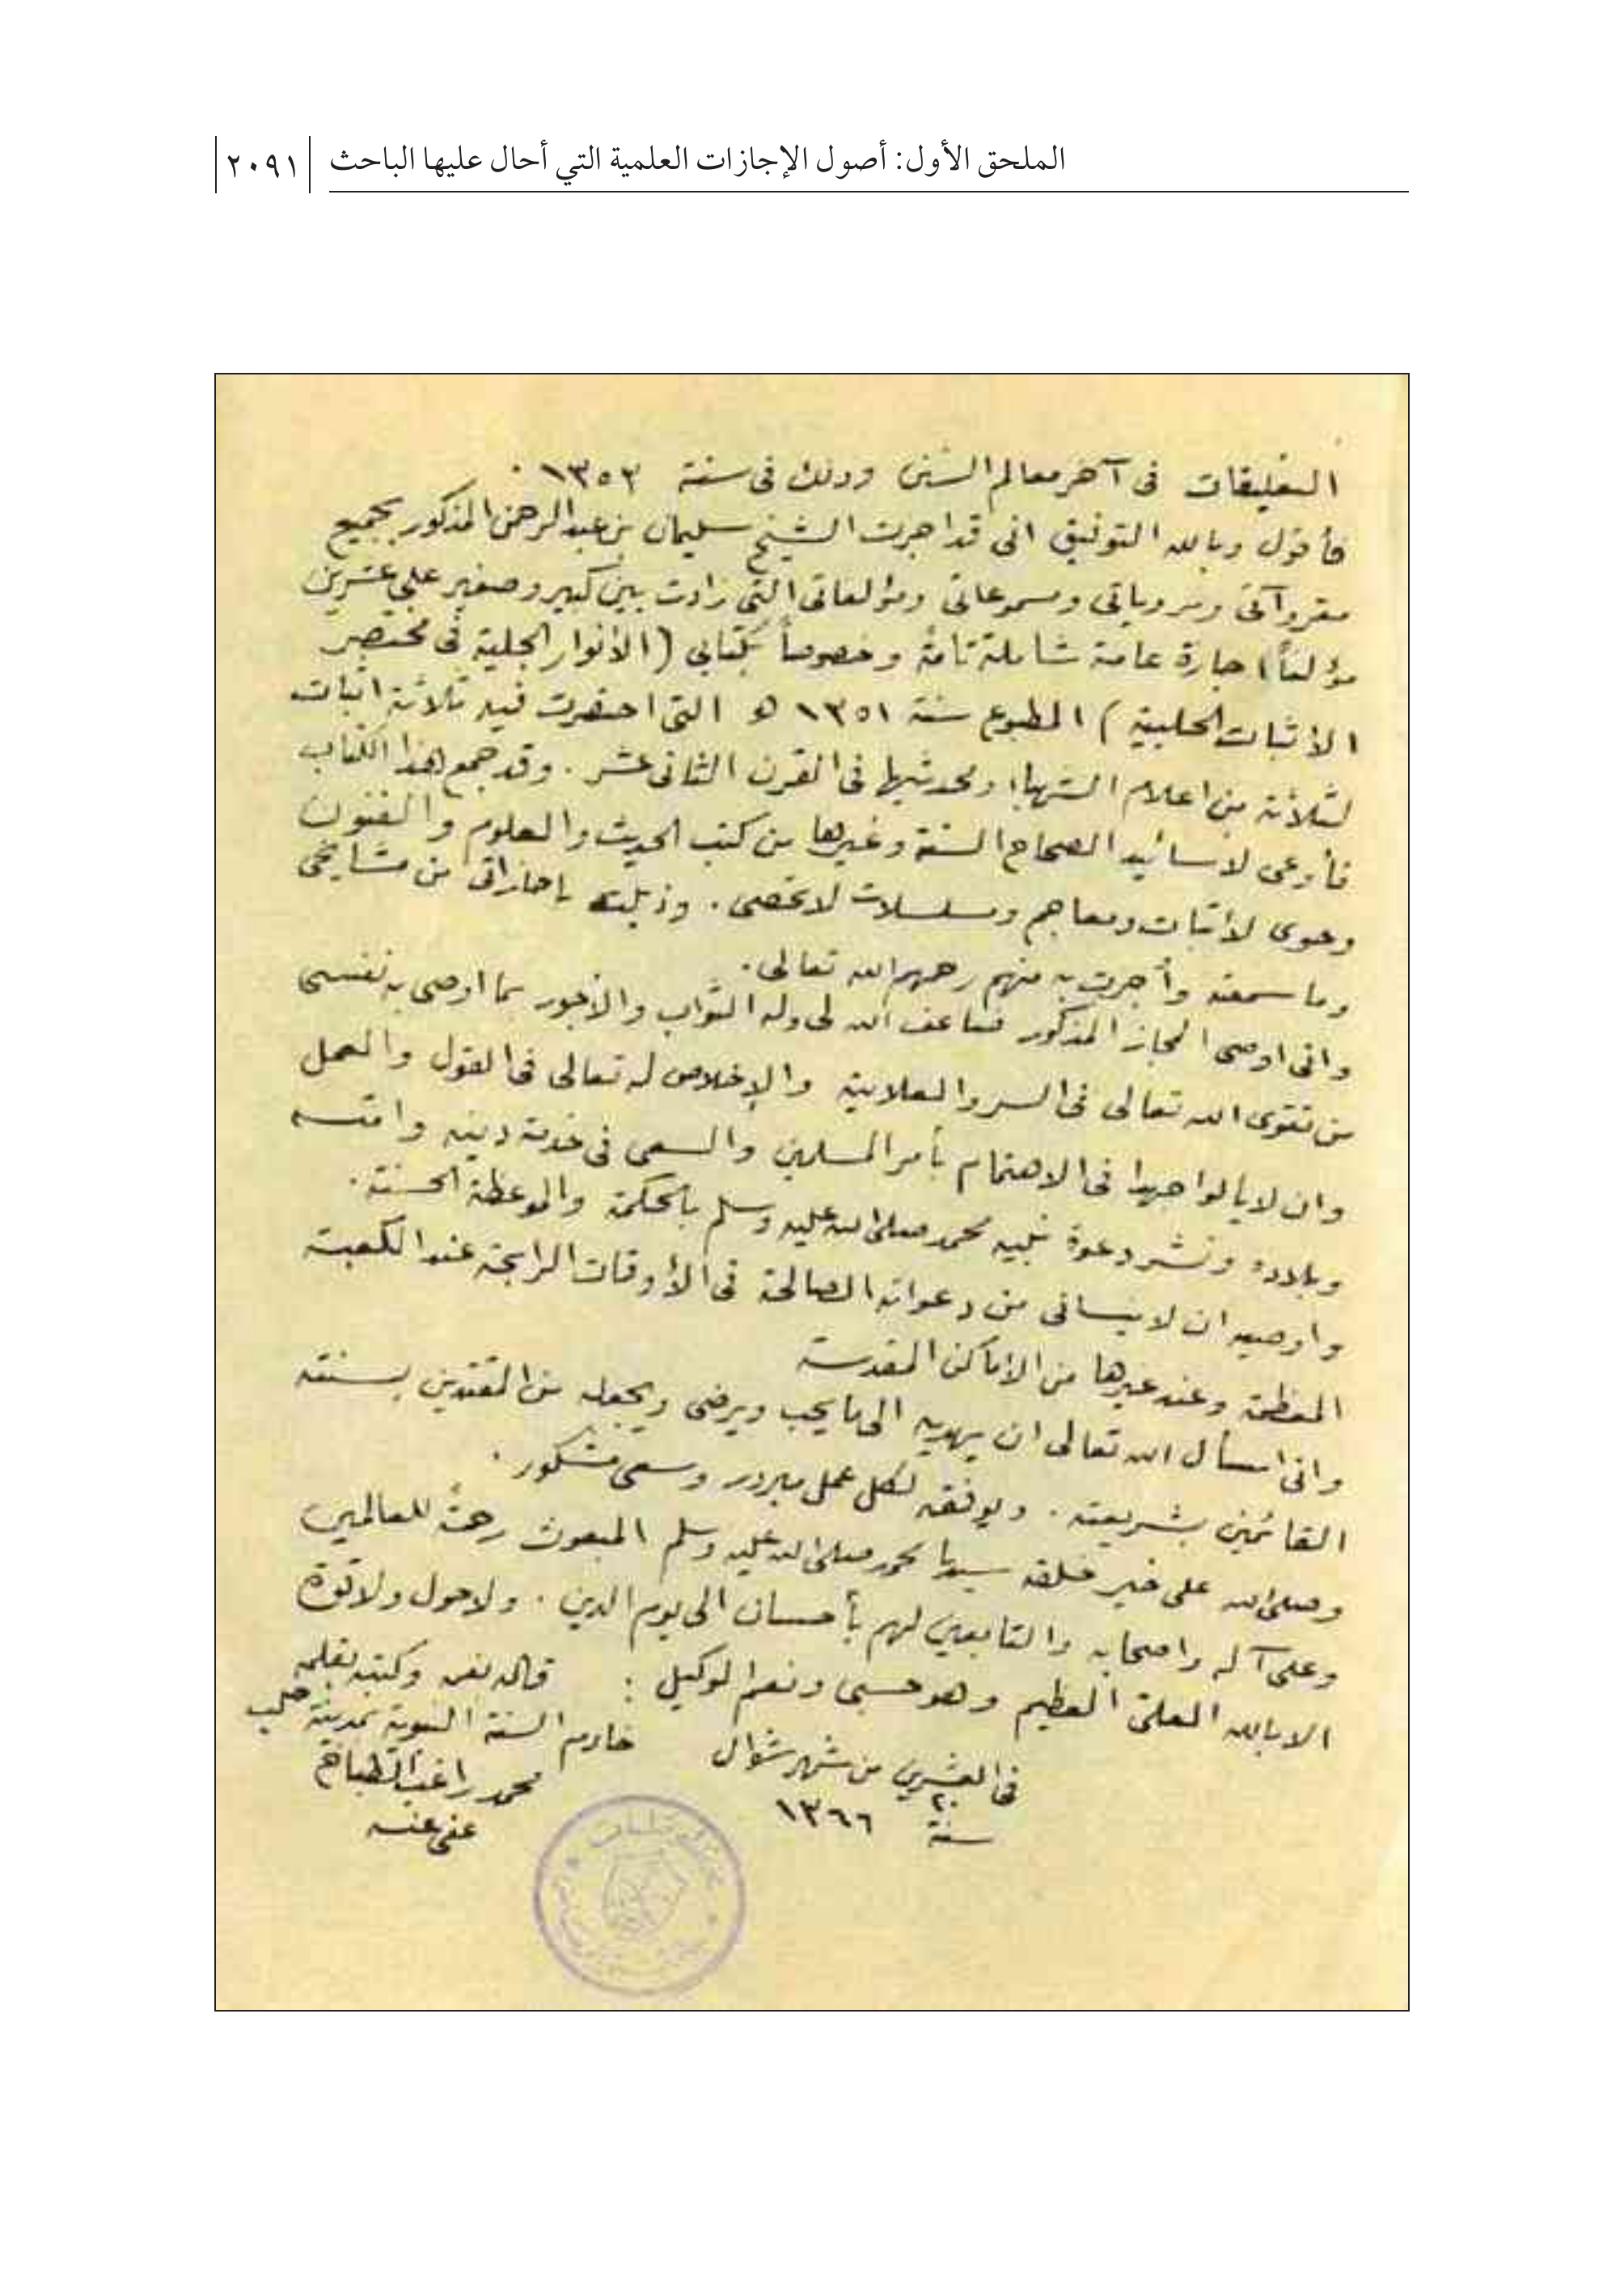 الملحق الأول: أصول الإجازات العلمية التي أحال عليها الباحث
٢٠٩١
التعليقات فى آخر معالم السنن وذلك فى سنة ١٣٥٣ .
فأقول وبالله التوفيق انى قد اجزت الشيخ سليمان بن عبد الرحمن المذكور بجميع
مقروآتى ومروياتى ومسموعاتى ومؤلفاتى التى زادت بين كبير وصغير على عشرين
مؤلفاً اجازة عامة شاملة تامة وخصوصاً بكتابى (الأنوار الجلية فى مختصر
الأثبات الحلبية) المطبوع سنة ١٣٥١ ه التى اختصرت فيه ثلاثة اثبات
لثلاثة من اعلام الشهباء ومحدثيها فى القرن الثانى عشر . وقد جمع هذا الكتاب
فأوعى لأسانيد الصحاح الستة وغيرها من كتب الحديث والعلوم والفنون
وحوى لأثبات ومعاجم ومسلسلات لا تحصى . وذيلته باجازاتى من مشايخى
وما سمعته وأجزت به منهم رحمهم الله تعالى .
وانى اوصى المجاز المذكور ضاعف الله لى وله الثواب والأجور بما اوصى به نفسى
من تقوى الله تعالى فى السر والعلانية والإخلاص له تعالى فى القول والعمل
وان لا يألوا جهدا فى الاهتمام بأمر المسلمين والسعى فى خدمة دينه وامته
وبلاده ونشر دعوة نبيه محمد صلى الله عليه وسلم بالحكمة والموعظة الحسنة .
واوصيه ان لا ينسانى من دعواته الصالحة فى الأوقات الرابحة عند الكعبة
المعظمة وعند غيرها من الاماكن المقدسة
وانى اسأل الله تعالى ان يهديه الى ما يحب ويرضى ويجعله من المقتدين بسنته
القائمين بشريعته . ويوفقه لكل عمل مبرور وسعى مشكور .
وصلى الله على خير خلقه سيدنا محمد صلى الله عليه وسلم المبعوث رحمةً للعالمين
وعلى آله واصحابه والتابعين لهم بأحسان الى يوم الدين . ولا حول ولا قوة
الا بالله العلى العظيم وهو حسبى ونعم الوكيل : قاله بفمه وكتبه بقلمه
خادم السنة النبوية بمدينة حلب
فى العشرين من شهر شوال
محمد راغب الطباخ
٢٠
سنة ١٣٦٦
عفى عنه